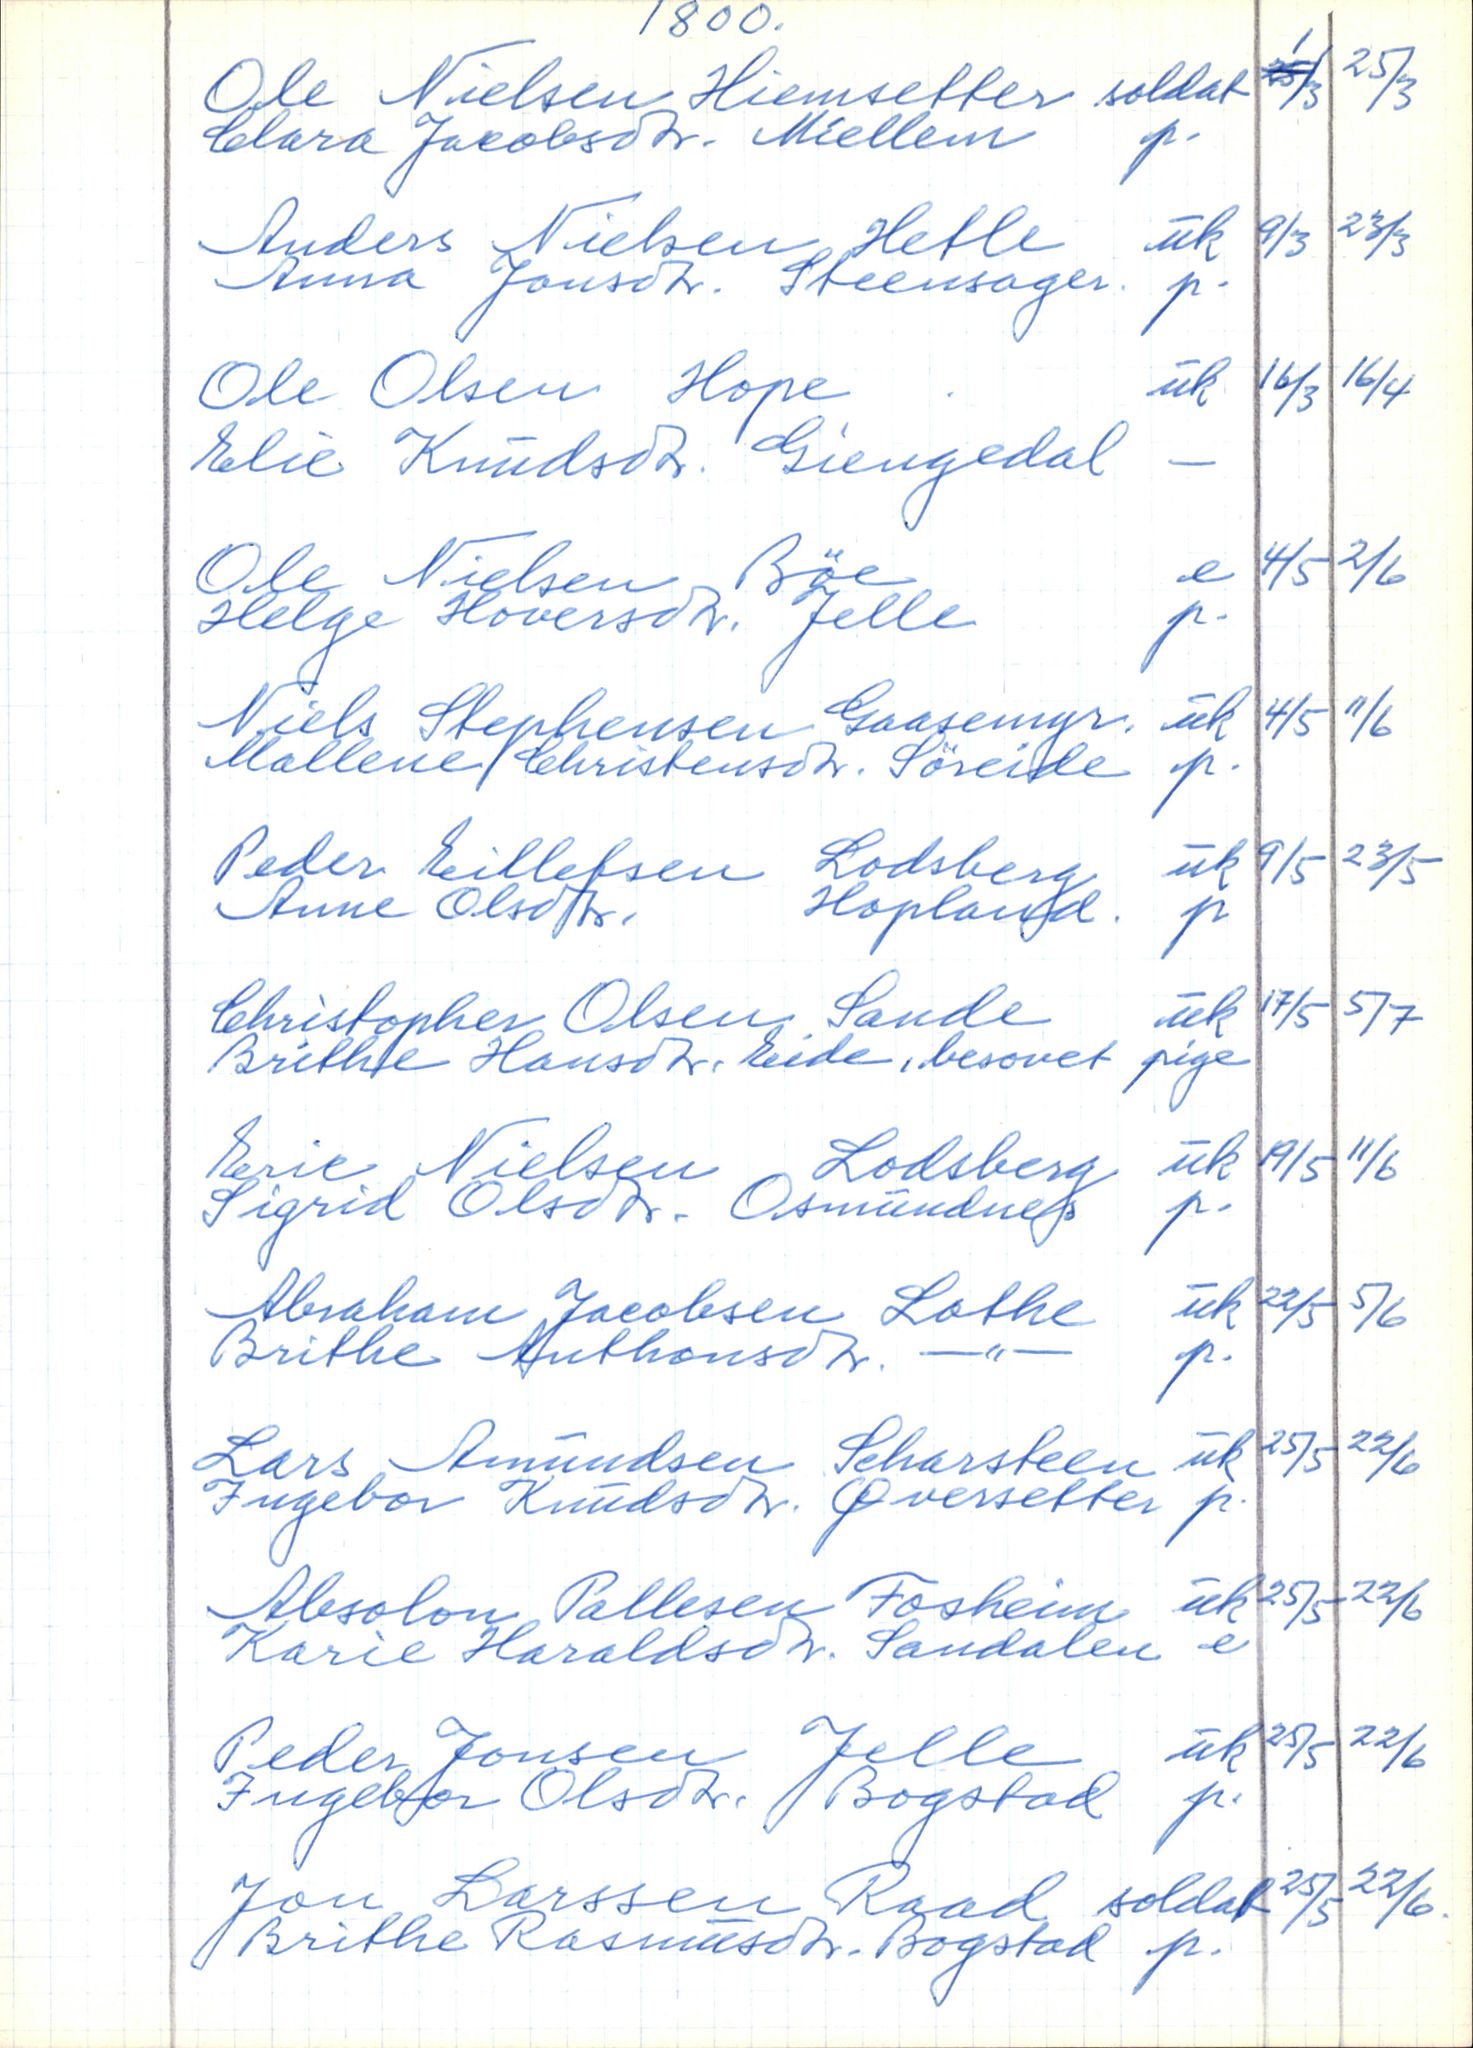 1800.
Ole Nielsen Hiemsetter soldat 1/3 25/3
Clara Jacobsdtr. Miellem p.
Anders Nielsen Hetle uk 9/3 23/3
Anna Jonsdtr. Steensager. p.
Ole Olsen Hope uk 16/3 16/4
Elie Knudsdtr. Giengedal —
Ole Nielsen Böe e 4/5 2/6
Helge Hoversdtr. Jelle p.
Niels Stephensen Gaasemyr. uk 4/5 11/6
Mallene Christensdtr. Söreide p.
Peder Eillefsen Lodsberg uk 9/5 23/5
Anne Olsdtr. Hopland. p
Christopher Olsen Sande uk 17/5 5/7
Brithe Hansdtr. Eide, besovet pige
Eric Nielsen Lodsberg uk 19/5 11/6
Sigrid Olsdtr. Osmundnes p.
Abraham Jacobsen Lothe uk 22/5 5/6
Brithe Anthonsdtr. —"— p.
Lars Amundsen Scharsteen uk 25/5 22/6
Ingebor Knudsdtr. Qversetter p.
Absolon Pallesen Fosheim uk 25/5 22/6
Karie Haraldsdtr. Sandalen e
Peder Jonsen Jelle uk 25/5 22/6
Ingebor Olsdtr. Bogstad p.
Jon Larssen Raad soldat 25/5 22/6.
Brithe Rasmusdtr. Bogstad p.